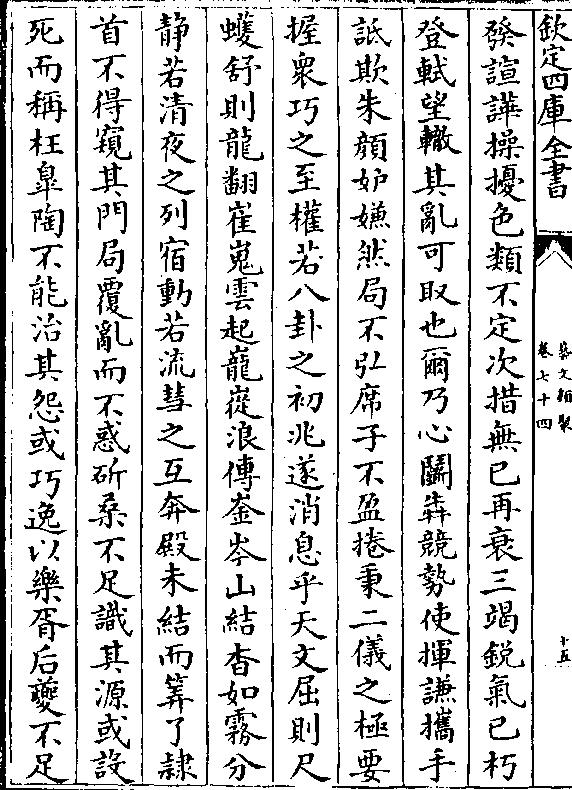 欽定四庫全書
藝文類聚
卷七十四
十五
發諠譁操擾色類不定次措無已再衰三竭鋭氣已朽
登軾望轍其亂可取也爾乃心鬭犇競勢使揮謙攜手
詆欺朱顔妒嫌然局不弘席子不盈捲秉二儀之極要
握衆巧之至權若八卦之初兆遂消息乎天文屈則尺
蠖舒則龍翻崔嵬雲起巃嵷浪傳崟岑山結杳如霧分
静若清夜之列宿動若流彗之互奔殿未結而筭了隷
首不得窺其門局覆亂而不惑斫桑不足識其源或設
死而稱枉臯陶不能治其怨或巧逸以樂胥后夔不足